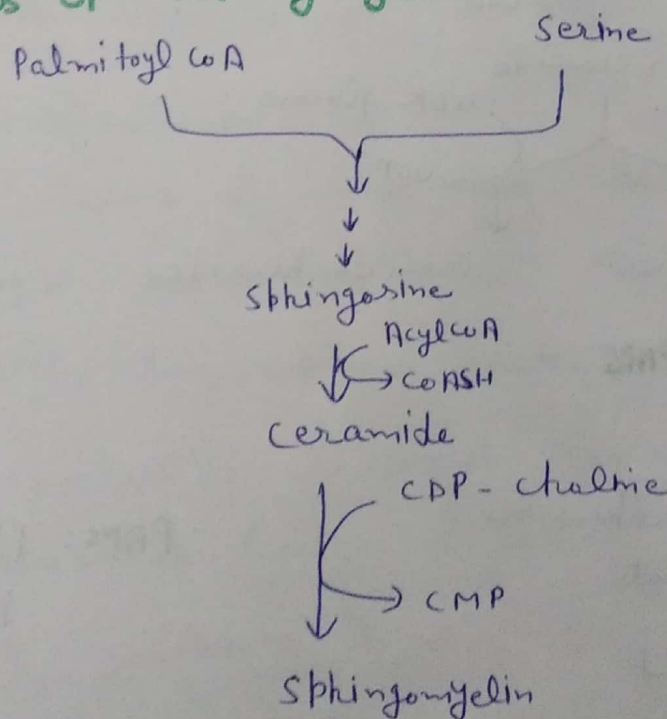 Serine
Palmitoyl CoA
Sphingosine
Acyl CoA
CoASH
Ceramide
CDP - Choline
CMP
Sphingomyelin